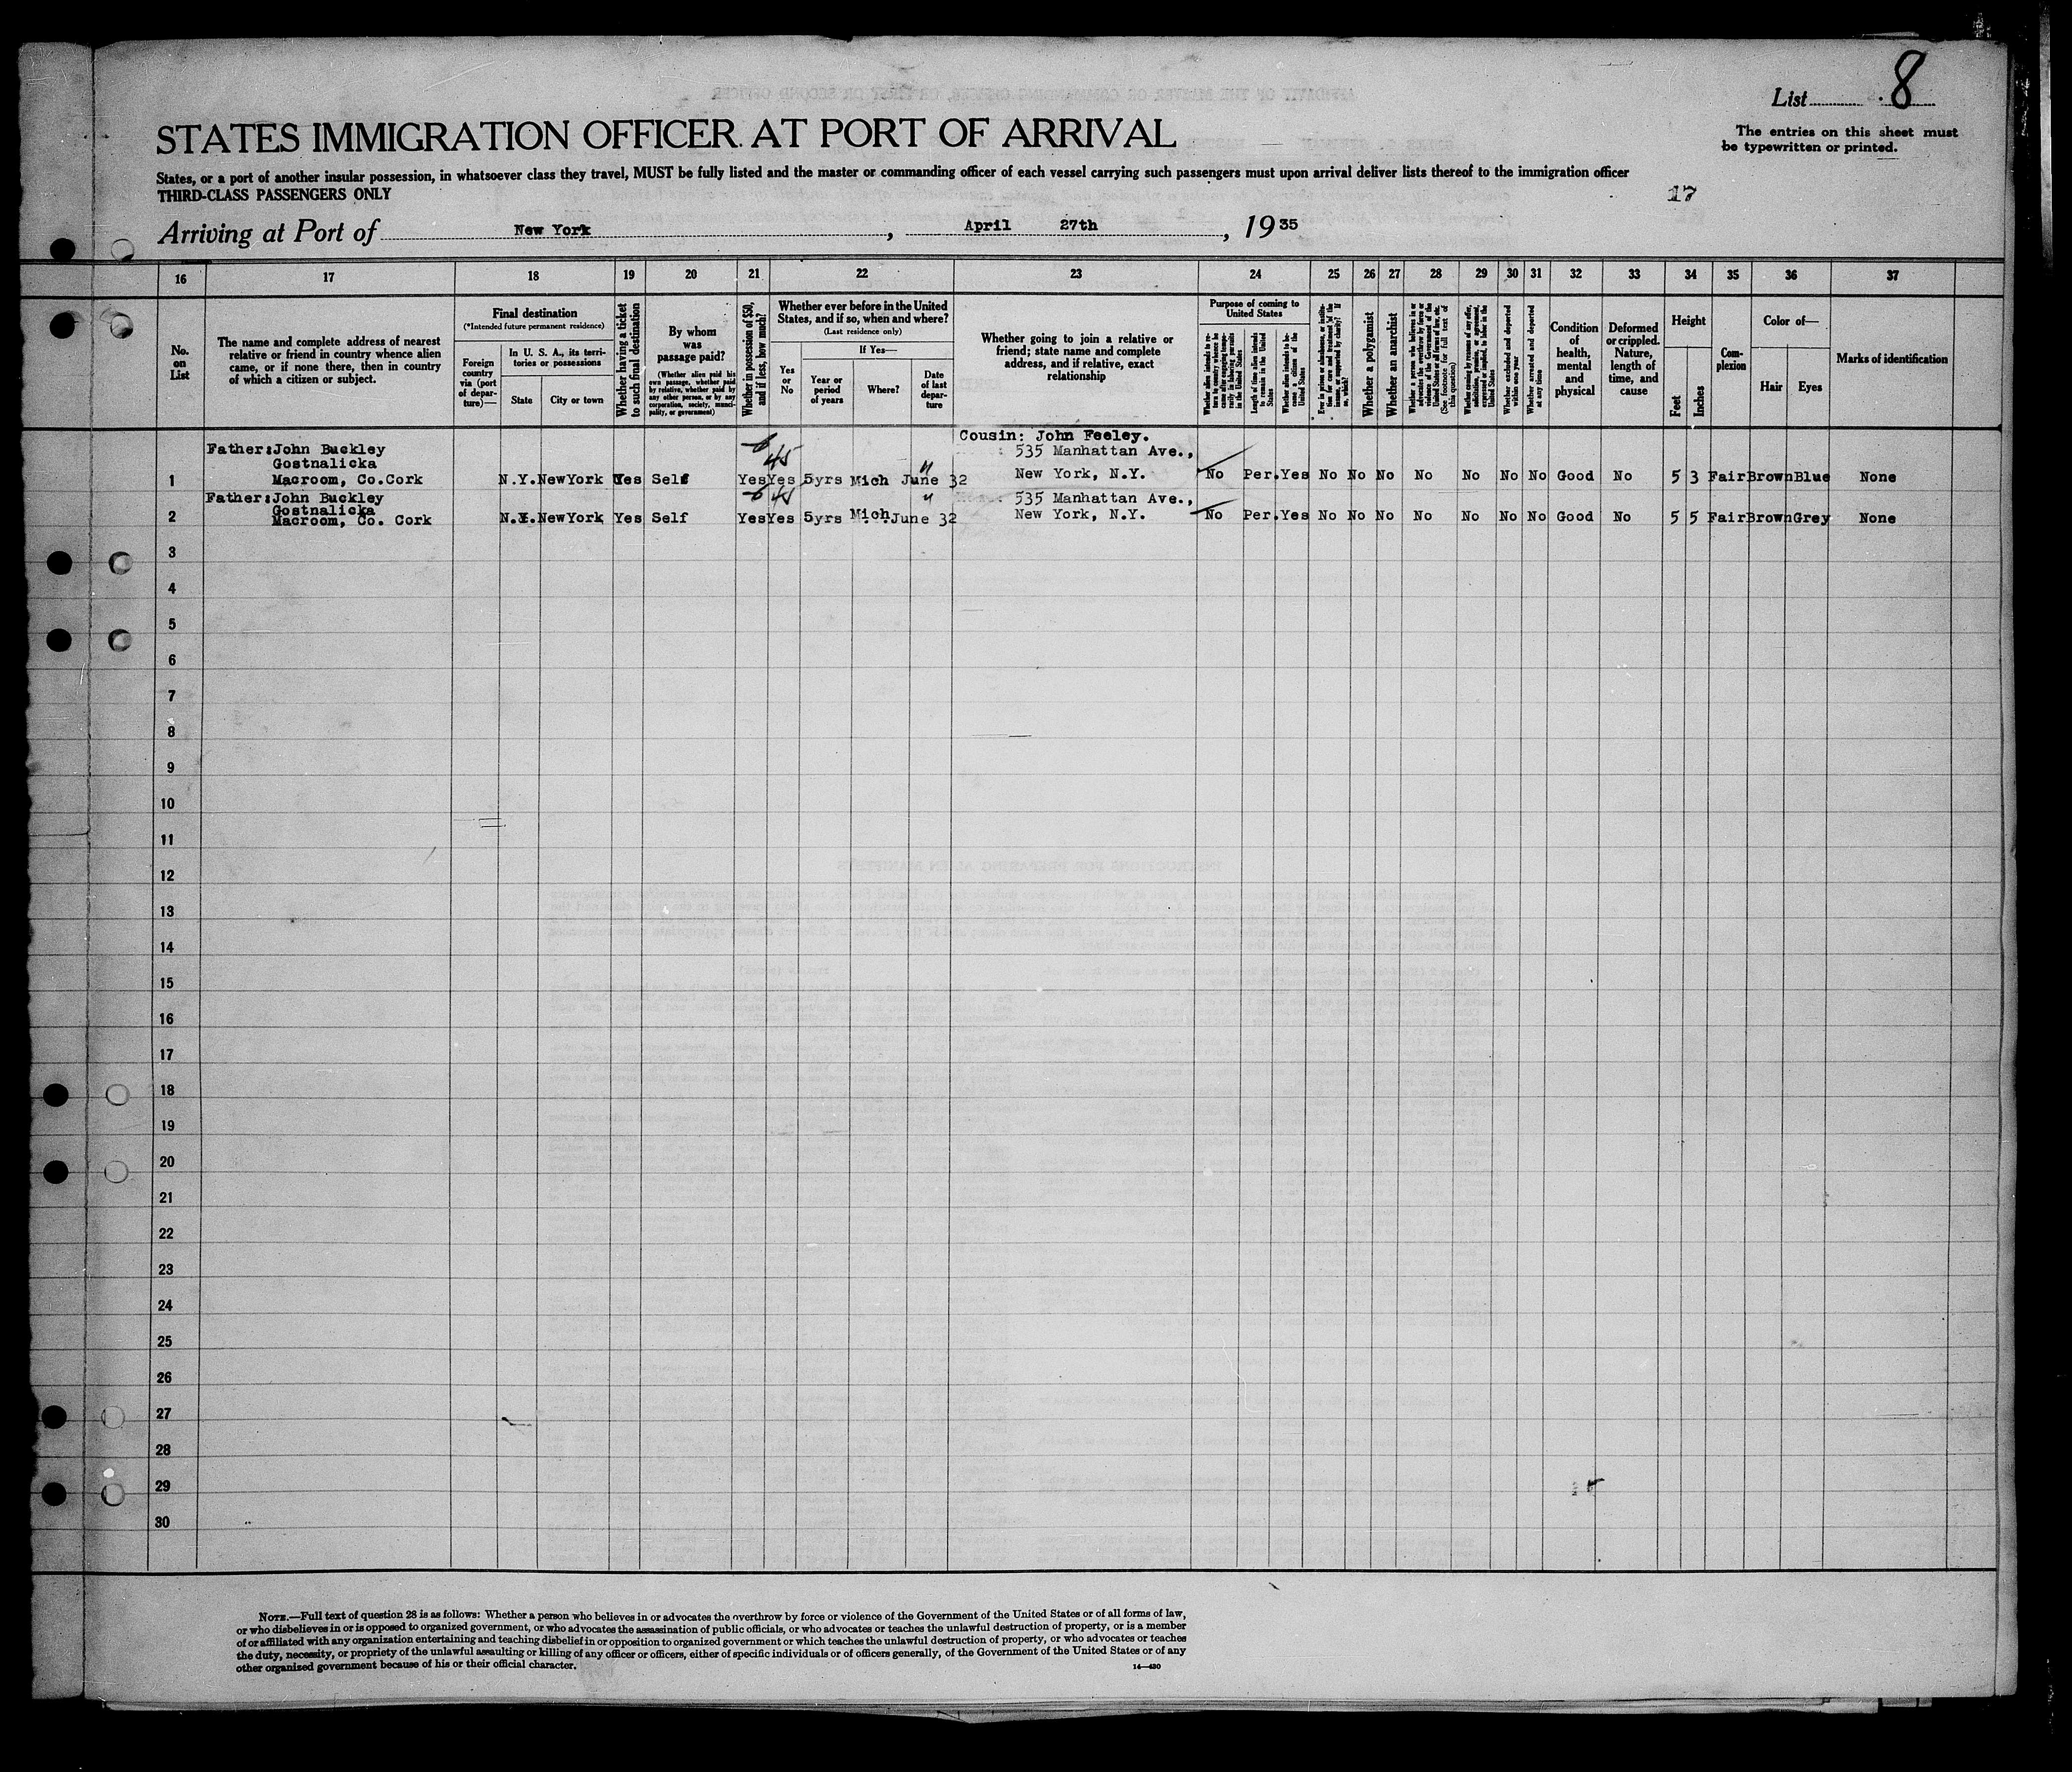 List 8
STATES IMMIGRATION OFFICER AT PORT OF ARRIVAL
The entries on this sheet must
be typewritten or printed.
States, or a port of another insular possession, in whatsoever class they travel, MUST be fully listed and the master or commanding officer of each vessel carrying such passengers must upon arrival deliver lists thereof to the immigration officer
THIRD-CLASS PASSENGERS ONLY
17
Arriving at Port of New York, April 27th, 1935
16 17 18 19 20 21 22 23 24 25 26 27 28 29 30 31 32 33 34 35 36 37
No. on List
The name and complete address of nearest relative or friend in country whence alien came, or if none there, then in country of which a citizen or subject.
Final destination
(*Intended future permanent residence)
Foreign country via (port of departure)—
In U. S. A., its territories or possessions
State
City or town
Whether having a ticket to such final destination
By whom was passage paid?
(Whether alien paid his own passage, whether paid by relative, whether paid by any other person, or by any corporation, society, municipality, or government)
Whether in possession of $50, and if less, how much?
Whether ever before in the United States, and if so, when and where?
(Last residence only)
Yes or No
If Yes—
Year or period of years
Where?
Date of last departure
Whether going to join a relative or friend; state name and complete address, and if relative, exact relationship
Purpose of coming to United States
Length of time alien intends to remain in the United States
Whether alien intends to become a citizen of the United States
Whether a polygamist
Whether an anarchist
Whether excluded and deported within one year
Whether arrested and deported at any time
Condition of health, mental and physical
Deformed or crippled. Nature, length of time, and cause
Height
Feet
Inches
Complexion
Color of—
Hair
Eyes
Marks of identification
Cousin: John Feeley.
Father: John Buckley 535 Manhattan Ave.,
Gostnalicka
1 Macroom, Co.Cork N.Y. NewYork Yes Self Yes Yes 5yrs Mich June 32 New York, N.Y. No Per. Yes No No No No No No No Good No 5 3 Fair Brown Blue None
Father: John Buckley 535 Manhattan Ave.,
Gostnalicka
2 Macroom, Co. Cork N.Y. NewYork Yes Self Yes Yes 5yrs Mich. June 32 New York, N.Y. No Per. Yes No No No No No No No Good No 5 5 Fair Brown Grey None
3
4
5
6
7
8
9
10
11
12
13
14
15
16
17
18
19
20
21
22
23
24
25
26
27
28
29
30
NOTE.—Full text of question 28 is as follows: Whether a person who believes in or advocates the overthrow by force or violence of the Government of the United States or of all forms of law,
or who disbelieves in or is opposed to organized government, or who advocates the assassination of public officials, or who advocates or teaches the unlawful destruction of property, or is a member
of or affiliated with any organization entertaining and teaching disbelief in or opposition to organized government or which teaches the unlawful destruction of property, or who advocates or teaches
the duty, necessity, or propriety of the unlawful assaulting or killing of any officer or officers, either of specific individuals or of officers generally, of the Government of the United States or of any
other organized government because of his or their official character.
14—430